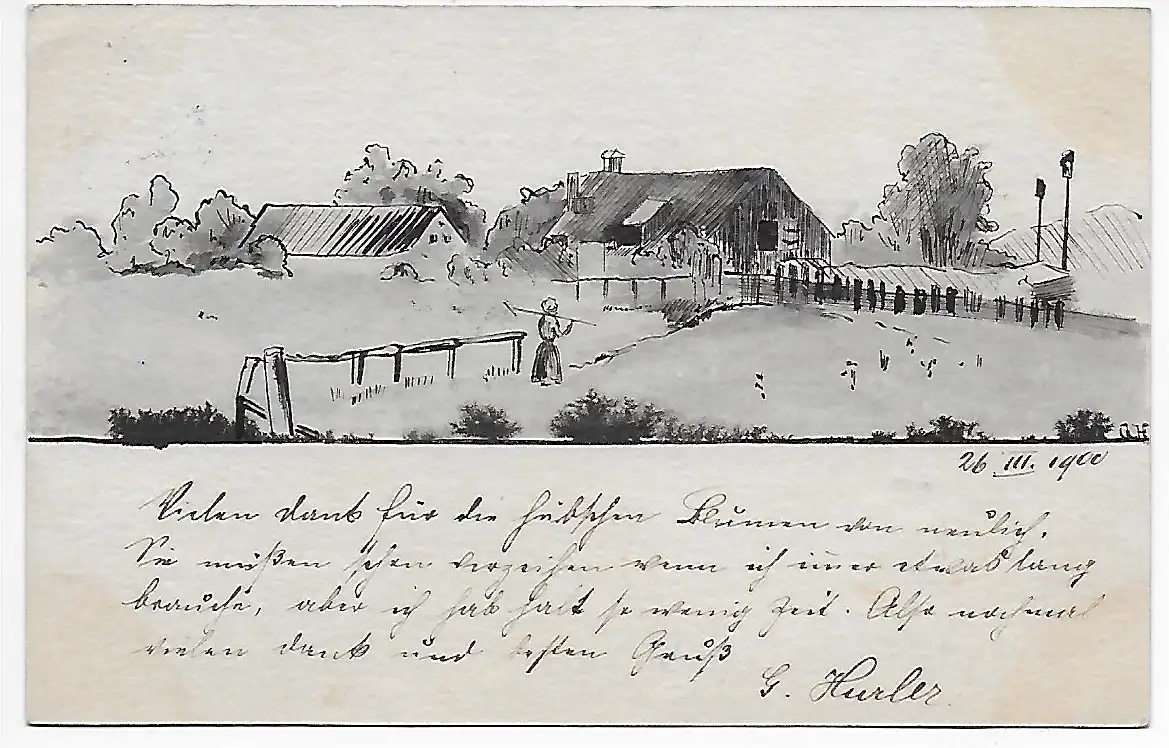 G H
26 III. 1900
Vielen dank für die hübschen Blumen von neulich.
Sie müßen schon verzeihen wenn ich immer etwas lang
brauche, aber ich hab halt so wenig Zeit. Also nochmal
vielen dank und besten Gruß
G. Hurler